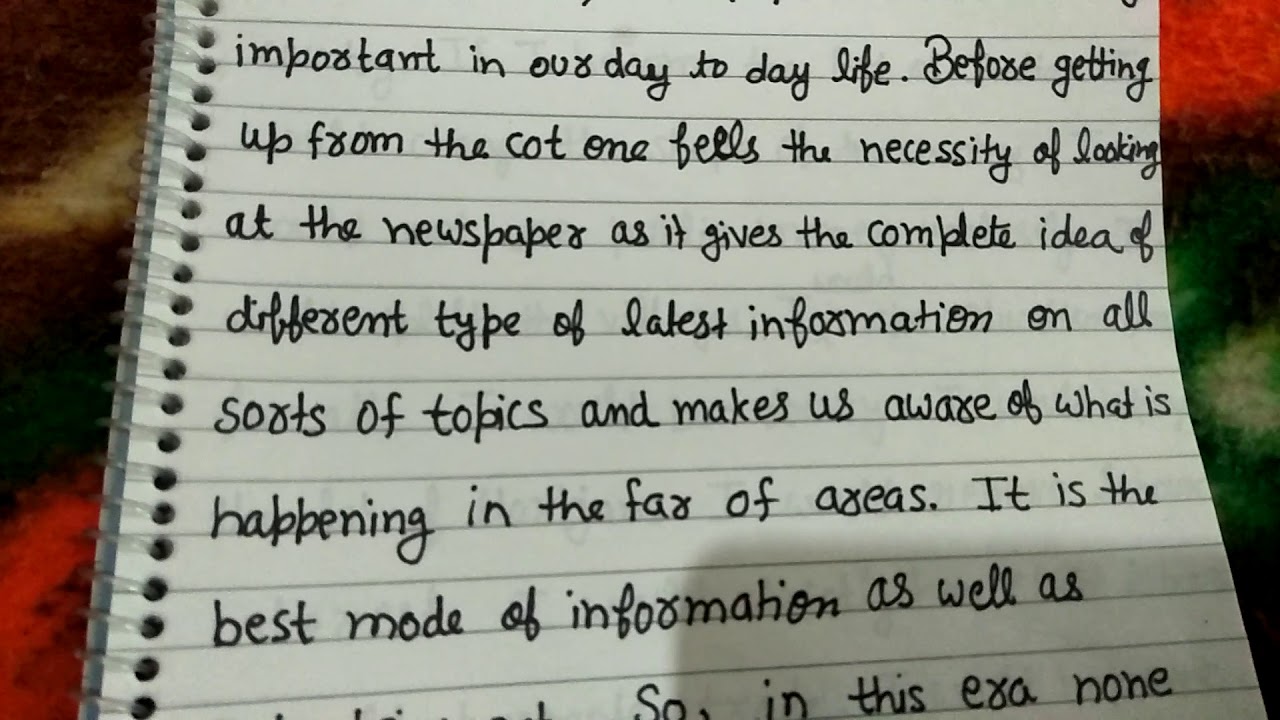 important in our day to day life. Before getting
up from the cot one feels the necessity of looking
at the newspaper as it gives the complete idea of
different type of latest information on all
sorts of topics and makes us aware of what is
happening in the far of areas. It is the
best mode of information as well as
So, in this era none